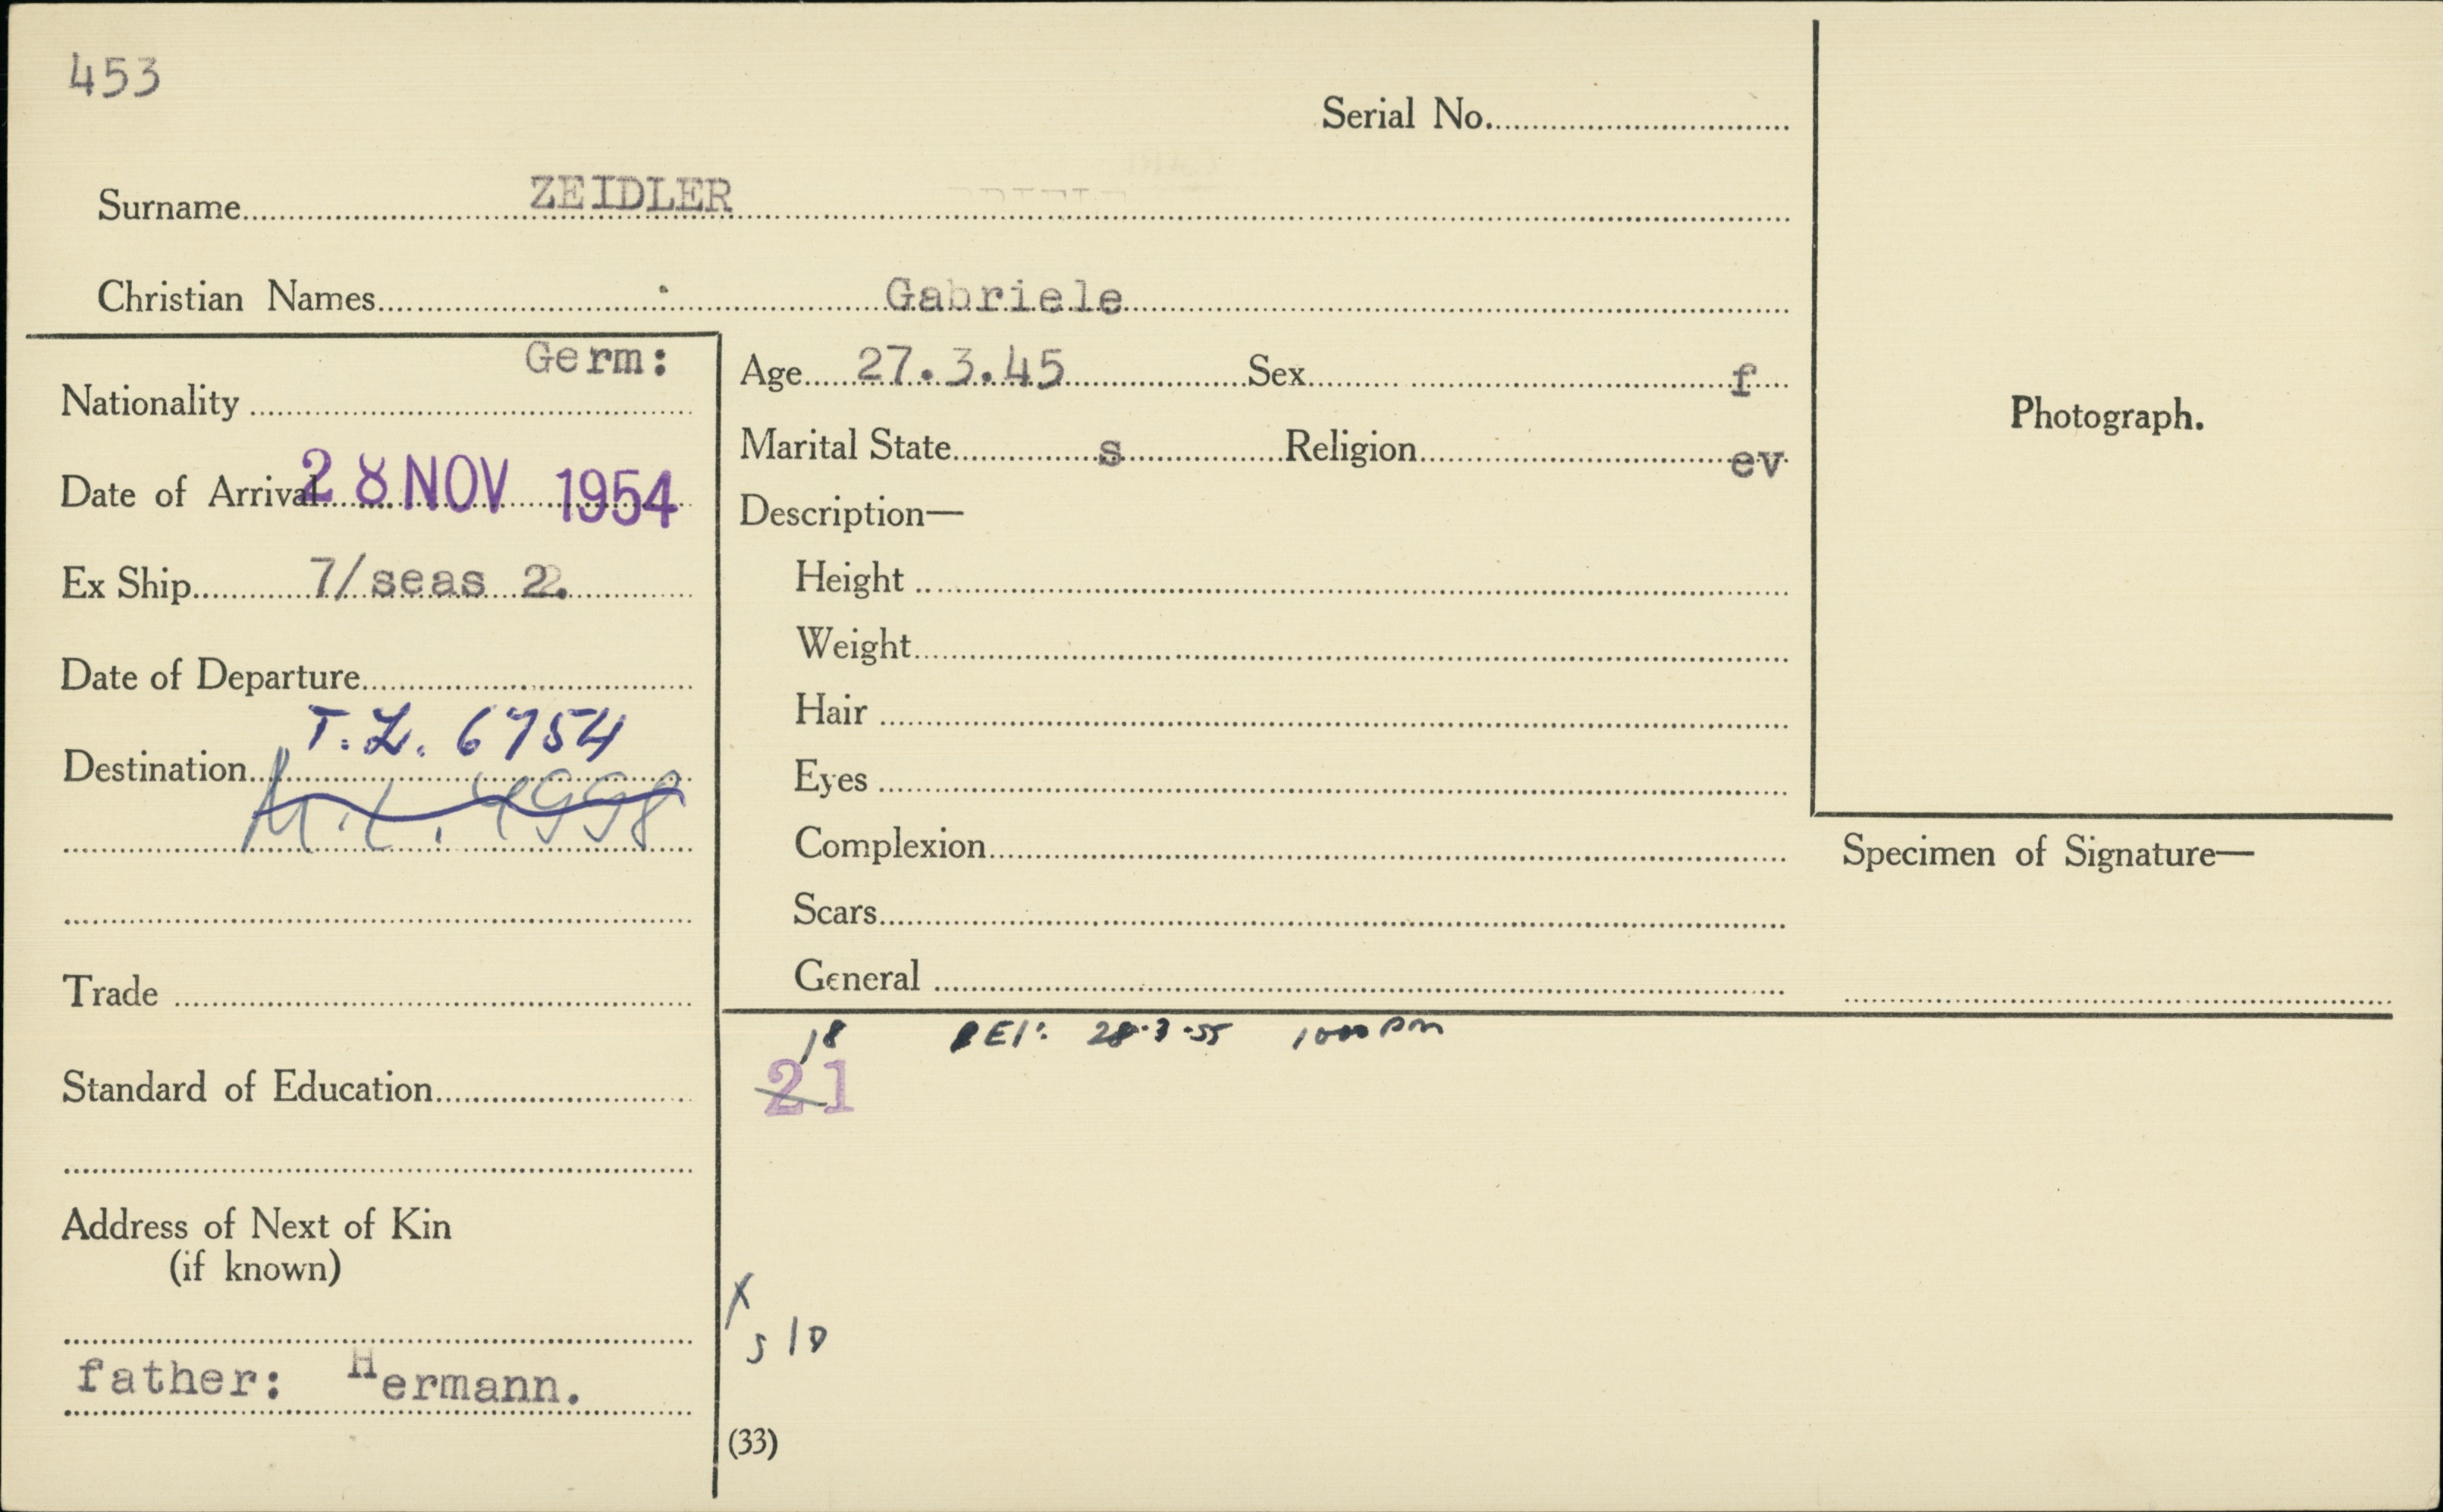 453
Serial No.
Surname ZEIDLER
Christian Names Gabriele
Nationality Germ:
Date of Arrival 28 NOV 1954
Ex Ship 7/seas 22.
Date of Departure
T.L. 6754
Destination
Trade
Standard of Education
Address of Next of Kin
(if known)
father: Hermann.
Age 27.3.45 Sex f
Marital State s Religion ev
Description—
Height
Weight
Hair
Eyes
Complexion
Scars
General
Photograph.
Specimen of Signature—
18 28.3.55
21
X
(33)